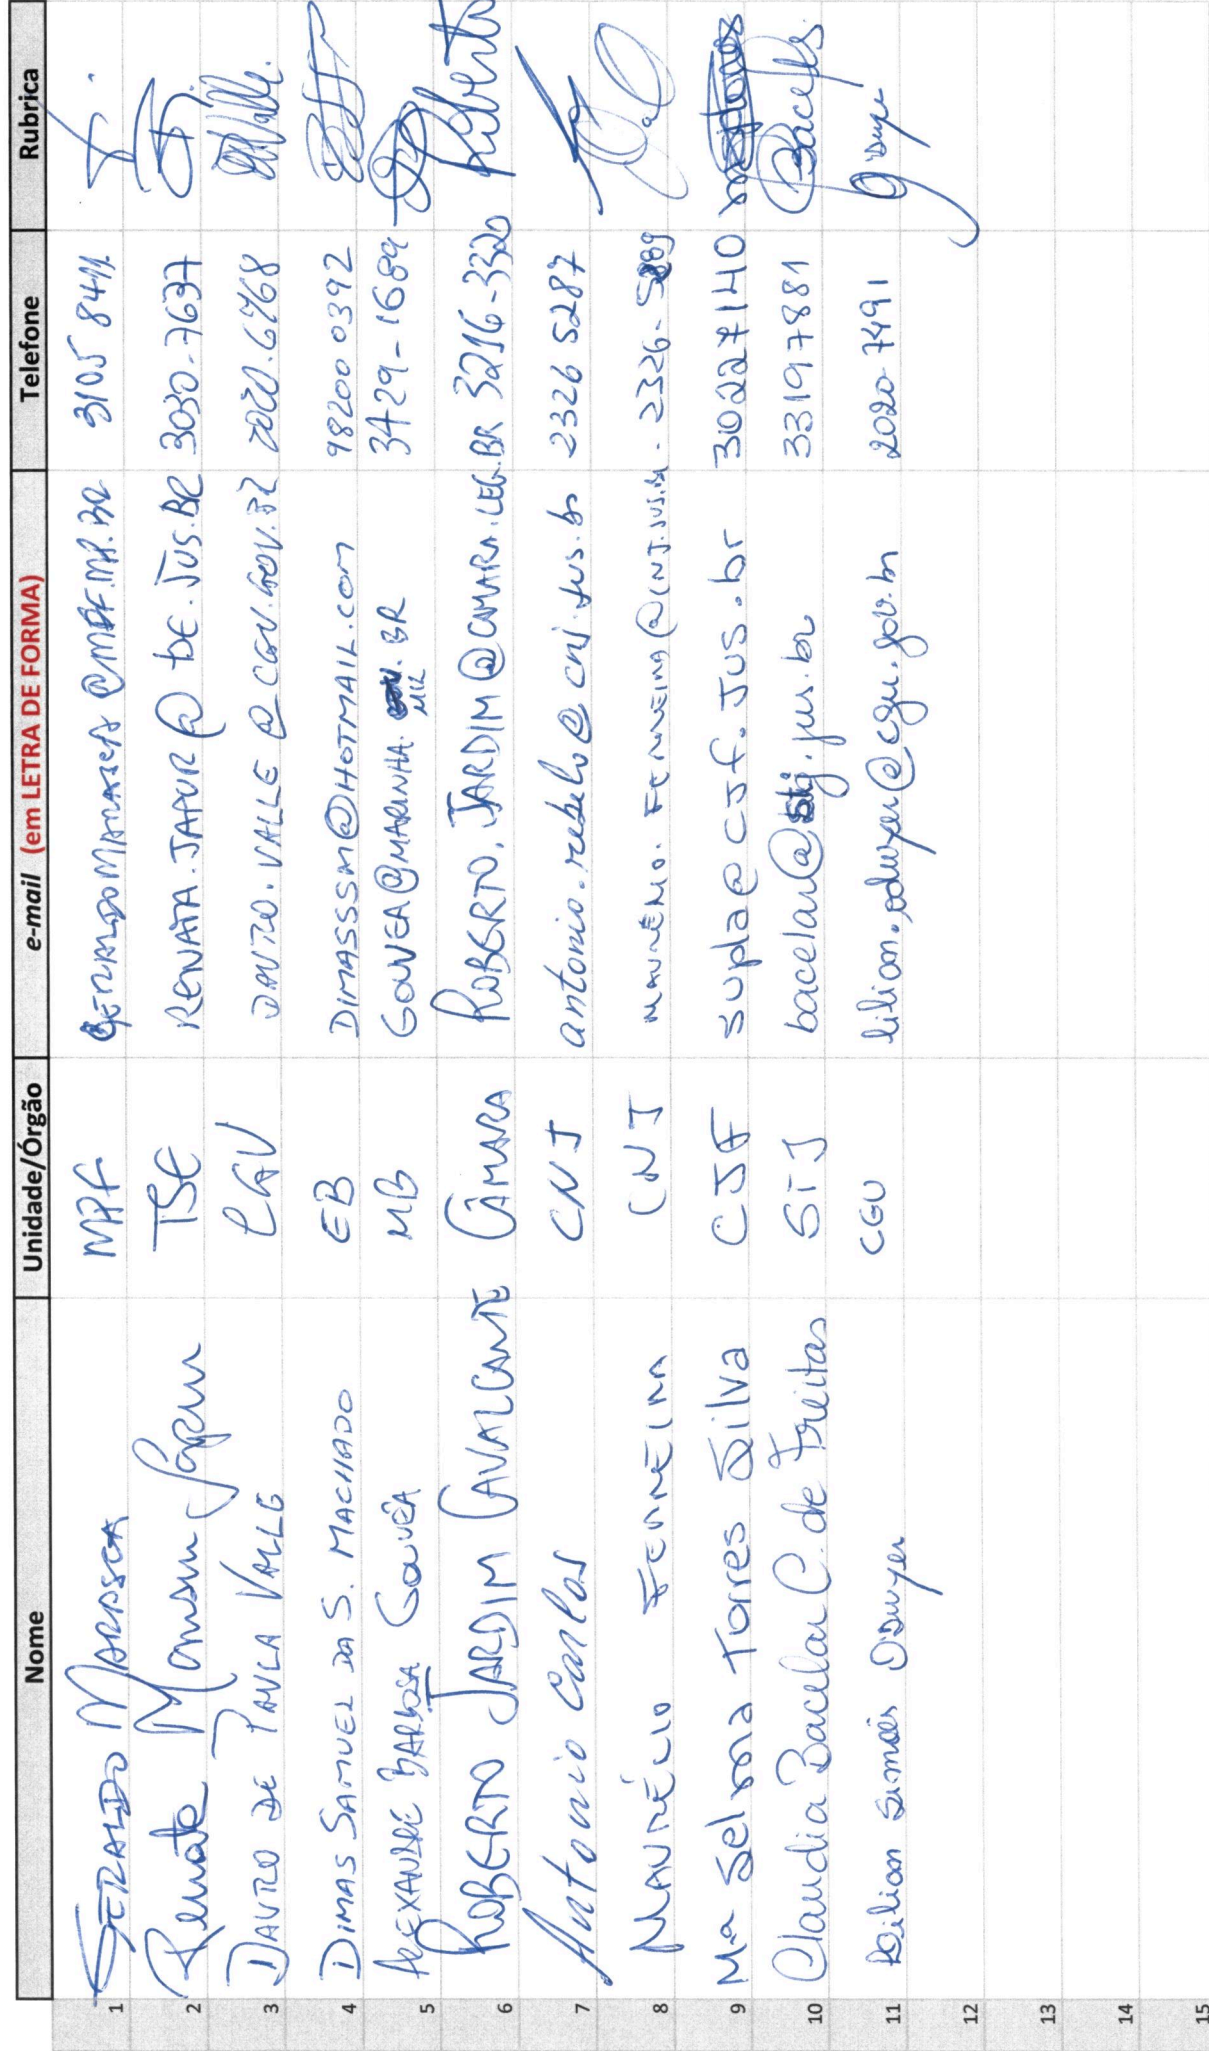 Nome Unidade/Órgão e-mail (em LETRA DE FORMA) Telefone Rubrica
1 GERALDO MARASCA MPF 3105 8411
2 Renata TSE RENATA.JAPUR@TSE.JUS.BR 3030-7637
3 DAVRO DE PAULA VALLE 2020.6768
4 DIMAS SAMUEL DA S. MACHADO EB DIMASSSM@HOTMAIL.COM 98200 0392
5 ALEXANDRE BARBOSA GOUVÊA MB GOUVEA@MARINHA.MIL.BR 3429-1689
6 ROBERTO JARDIM CAVALCANTE CÂMARA ROBERTO.JARDIM@CAMARA.LEG.BR 3216-3320 Roberto
7 Antonio Carlos CNJ antonio.rebelo@cnj.jus.br 2326 5287
8 FERREIRA CNJ
9 Ma Selma Torres Silva CJF supla@cjf.jus.br 30227140
10 Claudia Bacelar C. de Freitas STJ bacelar@stj.jus.br 33197881 Bacelar
11 Lilian Simões O'Dwyer CGU lilian.odwyer@cgu.gov.br 2020-7491 O'Dwyer
12
13
14
15